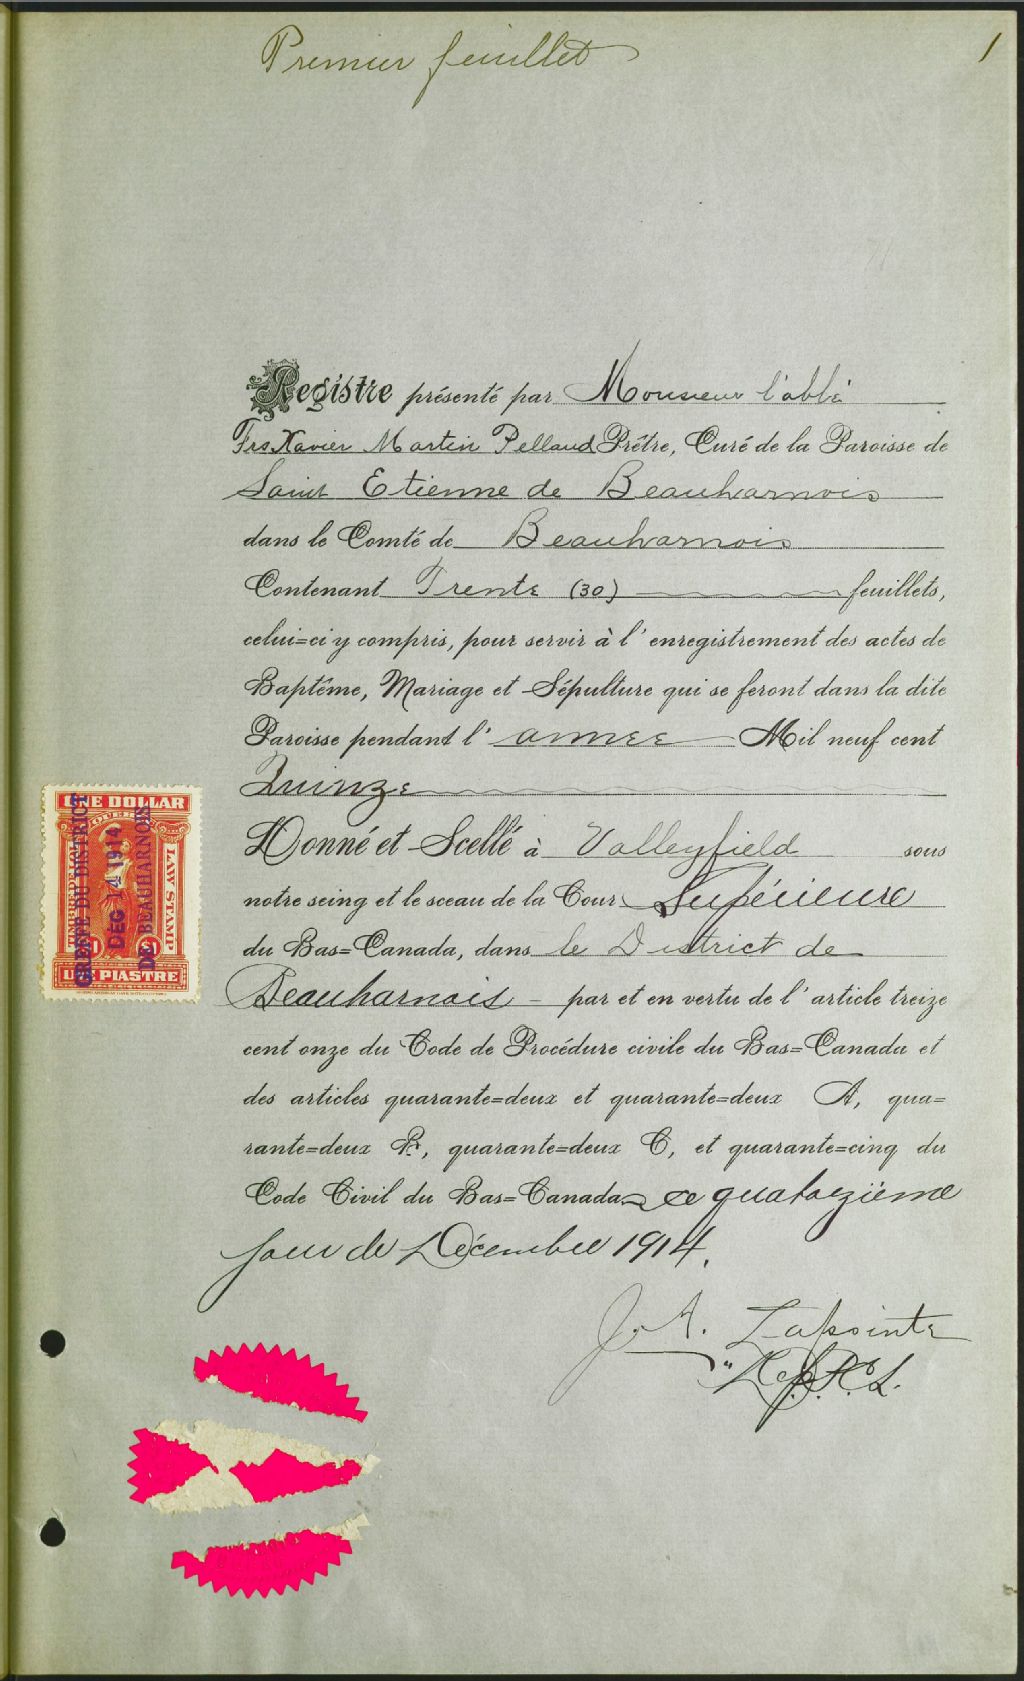 Premier feuillet
1
Registre présenté par Monsieur l'abbé
Frs Xavier Martin Pellaud Prêtre, Curé de la Paroisse de
Saint Etienne de Beauharnois
dans le Comté de Beauharnois
Contenant Trente (30) feuillets,
celui=ci y compris, pour servir à l'enregistrement des actes de
Baptême, Mariage et Sépulture qui se feront dans la dite
Paroisse pendant l'année Mil neuf cent
Quinze
Donné et Scellé à Valleyfield sous
notre seing et le sceau de la Cour Supérieure
du Bas=Canada, dans le District de
Beauharnois – par et en vertu de l'article treize
cent onze du Code de Procédure civile du Bas=Canada et
des articles quarante=deux et quarante=deux A, qua=
rante=deux B, quarante=deux C, et quarante=cinq du
Code Civil du Bas=Canada ce quatorzième
jour de Décembre 1914.
J. A. Lapointe
Dep. P. C. S.
ONE DOLLAR
QUEBEC
TIMBRE DE LOI
LAW STAMP
$1 $1
UNE PIASTRE
GREFFE DU DISTRICT
DEC 14 1914
DE BEAUHARNOIS